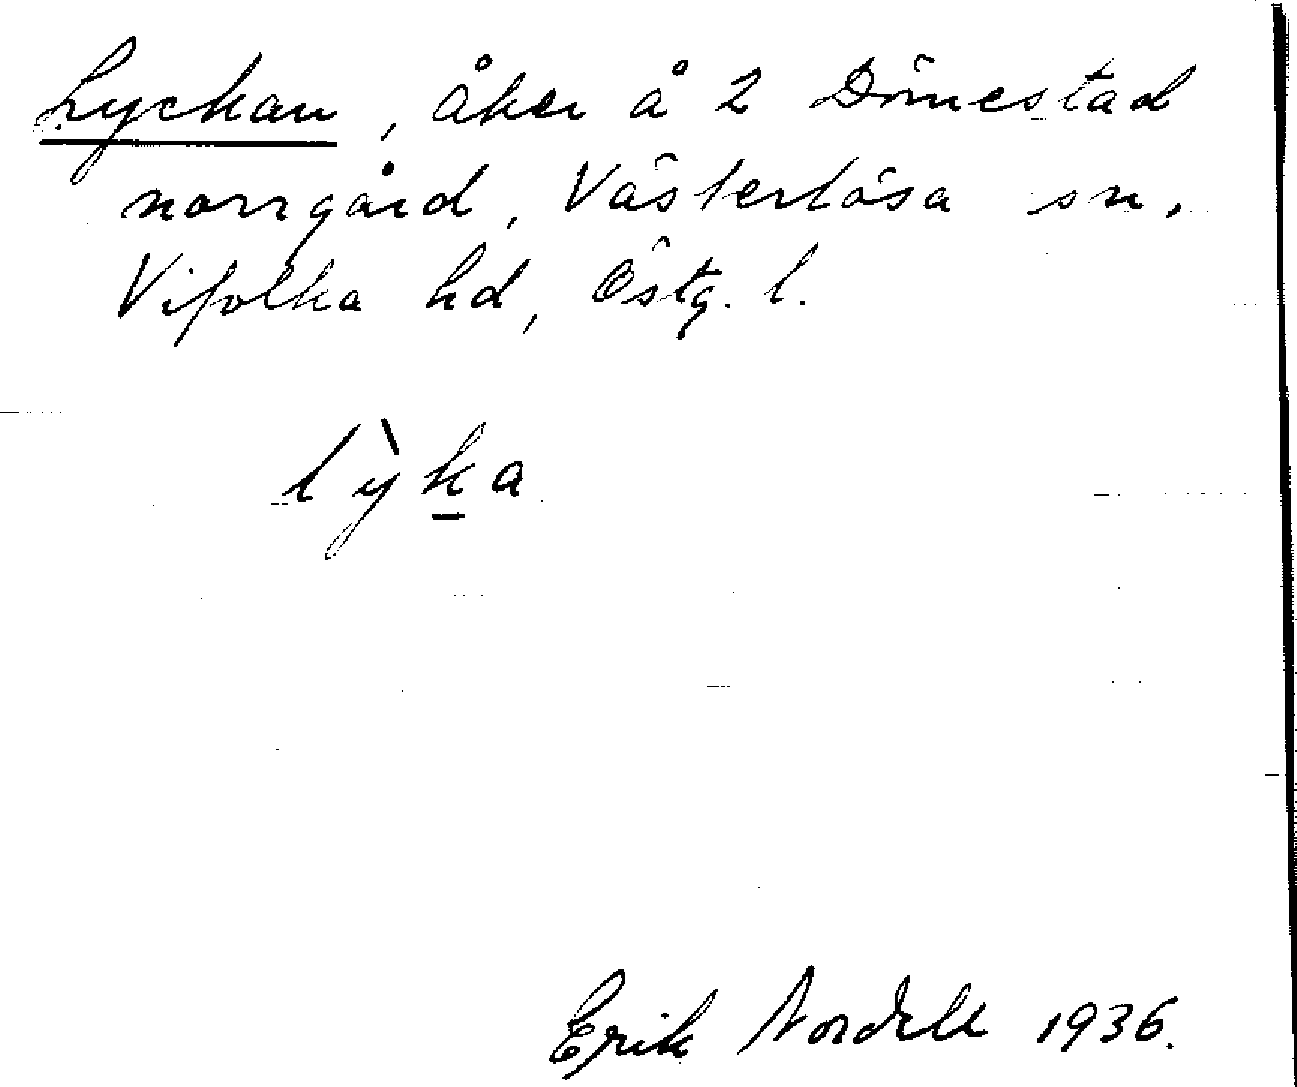 Lyckan, åker å 2 Dömestad
norrgård, Västerlösa sn,
Vifolka hd, Östg. l.
lỳk̲a
Erik Nordell 1936.